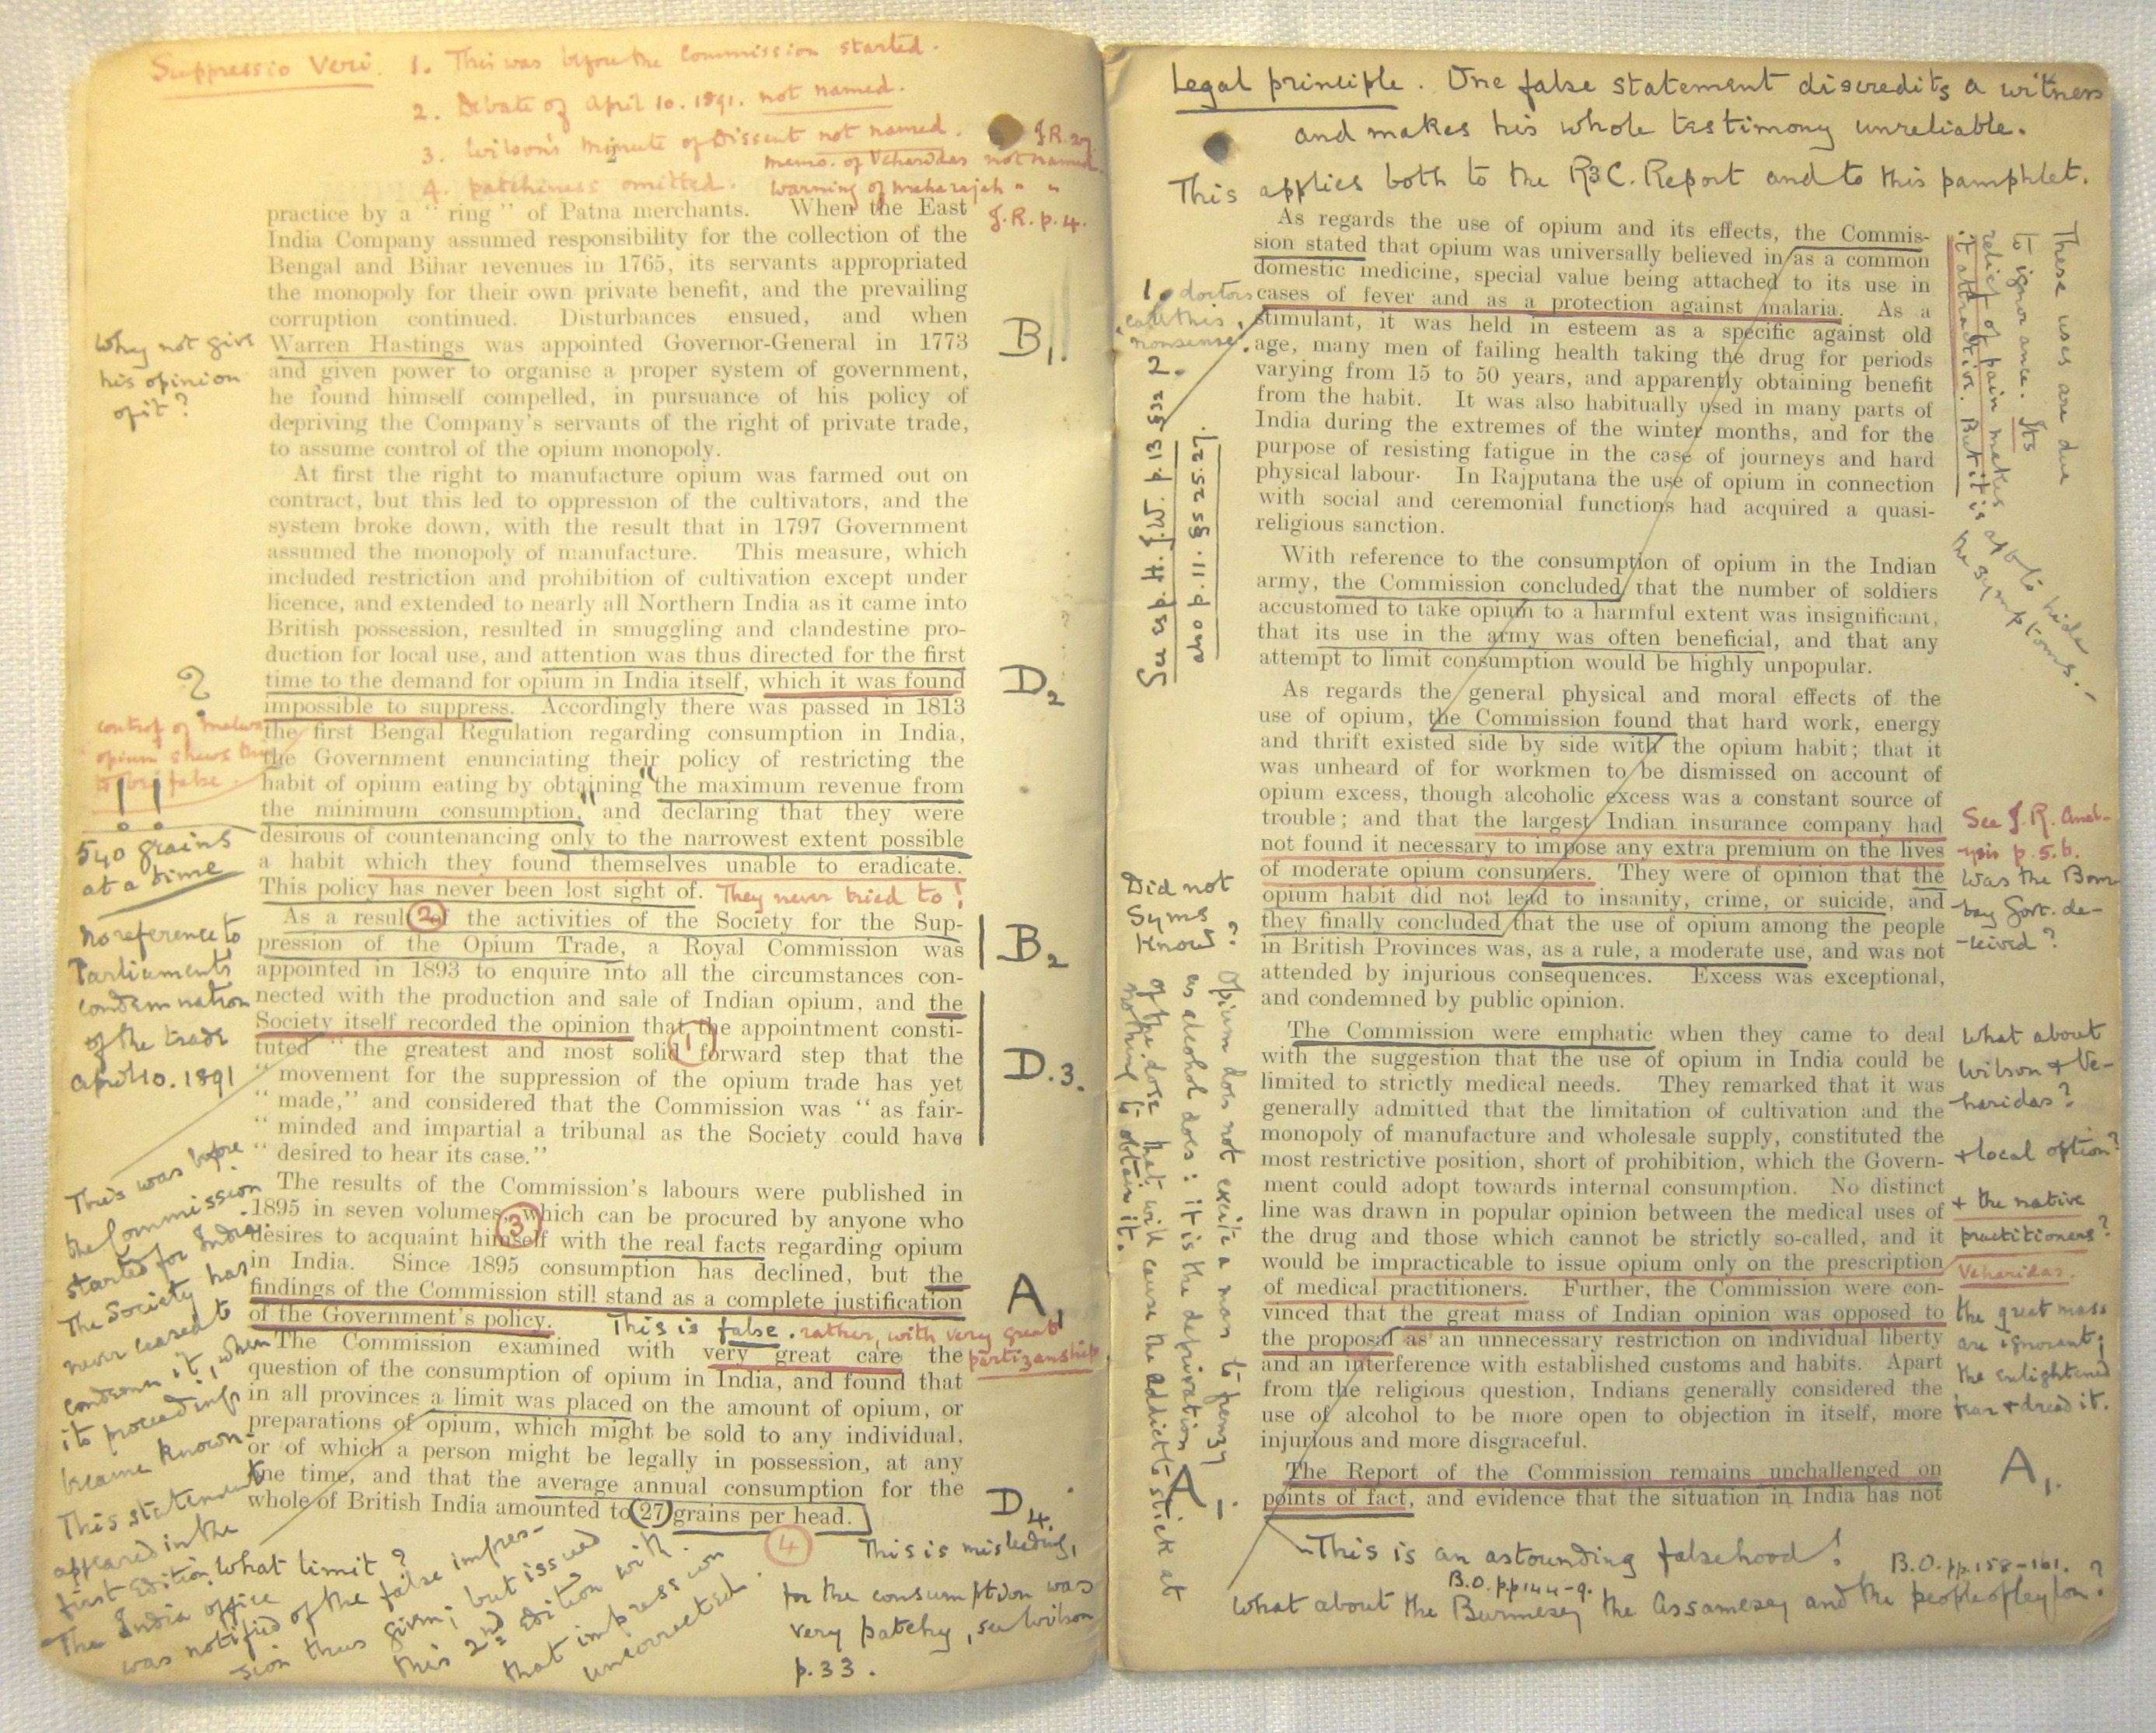 Suppressio Veri. 1. This was before the Commission started.
2. Debate of April 10. 1891. not named.
3. Wilson's Minute of Dissent not named. J.R. 27.
memo. of Veharidas not named.
4. patchiness omitted. warning of Maharajah " "
J.R. p. 4.
2
practice by a "ring" of Patna merchants. When the East
India Company assumed responsibility for the collection of the
Bengal and Bihar revenues in 1765, its servants appropriated
the monopoly for their own private benefit, and the prevailing
corruption continued. Disturbances ensued, and when
Warren Hastings was appointed Governor-General in 1773
and given power to organise a proper system of government,
he found himself compelled, in pursuance of his policy of
depriving the Company's servants of the right of private trade,
to assume control of the opium monopoly.
Why not give
his opinion
of it?
B1.
At first the right to manufacture opium was farmed out on
contract, but this led to oppression of the cultivators, and the
system broke down, with the result that in 1797 Government
assumed the monopoly of manufacture. This measure, which
included restriction and prohibition of cultivation except under
licence, and extended to nearly all Northern India as it came into
British possession, resulted in smuggling and clandestine pro-
duction for local use, and attention was thus directed for the first
time to the demand for opium in India itself, which it was found
impossible to suppress. Accordingly there was passed in 1813
the first Bengal Regulation regarding consumption in India,
the Government enunciating their policy of restricting the
habit of opium eating by obtaining "the maximum revenue from
the minimum consumption," and declaring that they were
desirous of countenancing only to the narrowest extent possible
a habit which they found themselves unable to eradicate.
This policy has never been lost sight of. They never tried to!
?
control of Malwa
opium shews this
to be false.
D2
!!
540 grains
at a time
As a result of the activities of the Society for the Sup-
pression of the Opium Trade, a Royal Commission was
appointed in 1893 to enquire into all the circumstances con-
nected with the production and sale of Indian opium, and the
Society itself recorded the opinion that the appointment consti-
tuted "the greatest and most solid forward step that the
"movement for the suppression of the opium trade has yet
"made," and considered that the Commission was "as fair-
"minded and impartial a tribunal as the Society could have
"desired to hear its case."
2
1
B2
D.3.
No reference to
Parliaments
condemnation
of the trade
April 10. 1891
The results of the Commission's labours were published in
1895 in seven volumes, which can be procured by anyone who
desires to acquaint himself with the real facts regarding opium
in India. Since 1895 consumption has declined, but the
findings of the Commission still stand as a complete justification
of the Government's policy. This is false. rather, with very great
partizanship
3
A1
The Commission examined with very great care the
question of the consumption of opium in India, and found that
in all provinces a limit was placed on the amount of opium, or
preparations of opium, which might be sold to any individual,
or of which a person might be legally in possession, at any
one time, and that the average annual consumption for the
whole of British India amounted to 27 grains per head.
D4.
4
This was before
the Commission
started for India.
The Society has
never ceased to
condemn it, when
its proceedings
became known.
This statement
appeared in the
first Edition.
The India office
was notified of the false impres-
sion thus given; but issued
this 2nd Edition with
that impression
uncorrected.
What limit?
This is misleading,
for the consumption was
very patchy, see Wilson
p. 33.
Legal principle. One false statement discredits a witness
and makes his whole testimony unreliable.
This applies both to the R3C. Report and to this pamphlet.
As regards the use of opium and its effects, the Commis-
sion stated that opium was universally believed in as a common
domestic medicine, special value being attached to its use in
cases of fever and as a protection against malaria. As a
stimulant, it was held in esteem as a specific against old
age, many men of failing health taking the drug for periods
varying from 15 to 50 years, and apparently obtaining benefit
from the habit. It was also habitually used in many parts of
India during the extremes of the winter months, and for the
purpose of resisting fatigue in the case of journeys and hard
physical labour. In Rajputana the use of opium in connection
with social and ceremonial functions had acquired a quasi-
religious sanction.
1. doctors
call this
nonsense.
2.
See esp. H.J.W. p. 13 §32
also p. 11. §§ 25.27.
These uses are due
to ignorance. Its
relief of pain makes
it attractive. But it is
apt to hide
the symptoms.
With reference to the consumption of opium in the Indian
army, the Commission concluded that the number of soldiers
accustomed to take opium to a harmful extent was insignificant,
that its use in the army was often beneficial, and that any
attempt to limit consumption would be highly unpopular.
As regards the general physical and moral effects of the
use of opium, the Commission found that hard work, energy
and thrift existed side by side with the opium habit; that it
was unheard of for workmen to be dismissed on account of
opium excess, though alcoholic excess was a constant source of
trouble; and that the largest Indian insurance company had
not found it necessary to impose any extra premium on the lives
of moderate opium consumers. They were of opinion that the
opium habit did not lead to insanity, crime, or suicide, and
they finally concluded that the use of opium among the people
in British Provinces was, as a rule, a moderate use, and was not
attended by injurious consequences. Excess was exceptional,
and condemned by public opinion.
See J.R. Anal-
ysis p. 5. 6.
Was the Bom-
bay Govt. de-
-ceived?
Did not
Syms
Know?
Opium does not excite a man to frenzy
as alcohol does: it is the deprivation
of the dose that will cause the addict to stick at
nothing to obtain it.
The Commission were emphatic when they came to deal
with the suggestion that the use of opium in India could be
limited to strictly medical needs. They remarked that it was
generally admitted that the limitation of cultivation and the
monopoly of manufacture and wholesale supply, constituted the
most restrictive position, short of prohibition, which the Govern-
ment could adopt towards internal consumption. No distinct
line was drawn in popular opinion between the medical uses of
the drug and those which cannot be strictly so-called, and it
would be impracticable to issue opium only on the prescription
of medical practitioners. Further, the Commission were con-
vinced that the great mass of Indian opinion was opposed to
the proposal as an unnecessary restriction on individual liberty
and an interference with established customs and habits. Apart
from the religious question, Indians generally considered the
use of alcohol to be more open to objection in itself, more
injurious and more disgraceful.
What about
Wilson & Ve-
haridas?
+ local option?
+ the native
practitioners?
Veharidas.
the great mass
are ignorant;
the enlightened
fear & dread it.
The Report of the Commission remains unchallenged on
points of fact, and evidence that the situation in India has not
A1
A1.
This is an astounding falsehood!
B.O. pp 144-9.
B.O. pp. 158-161.
What about the Burmese, the Assamese, and the people of Ceylon?